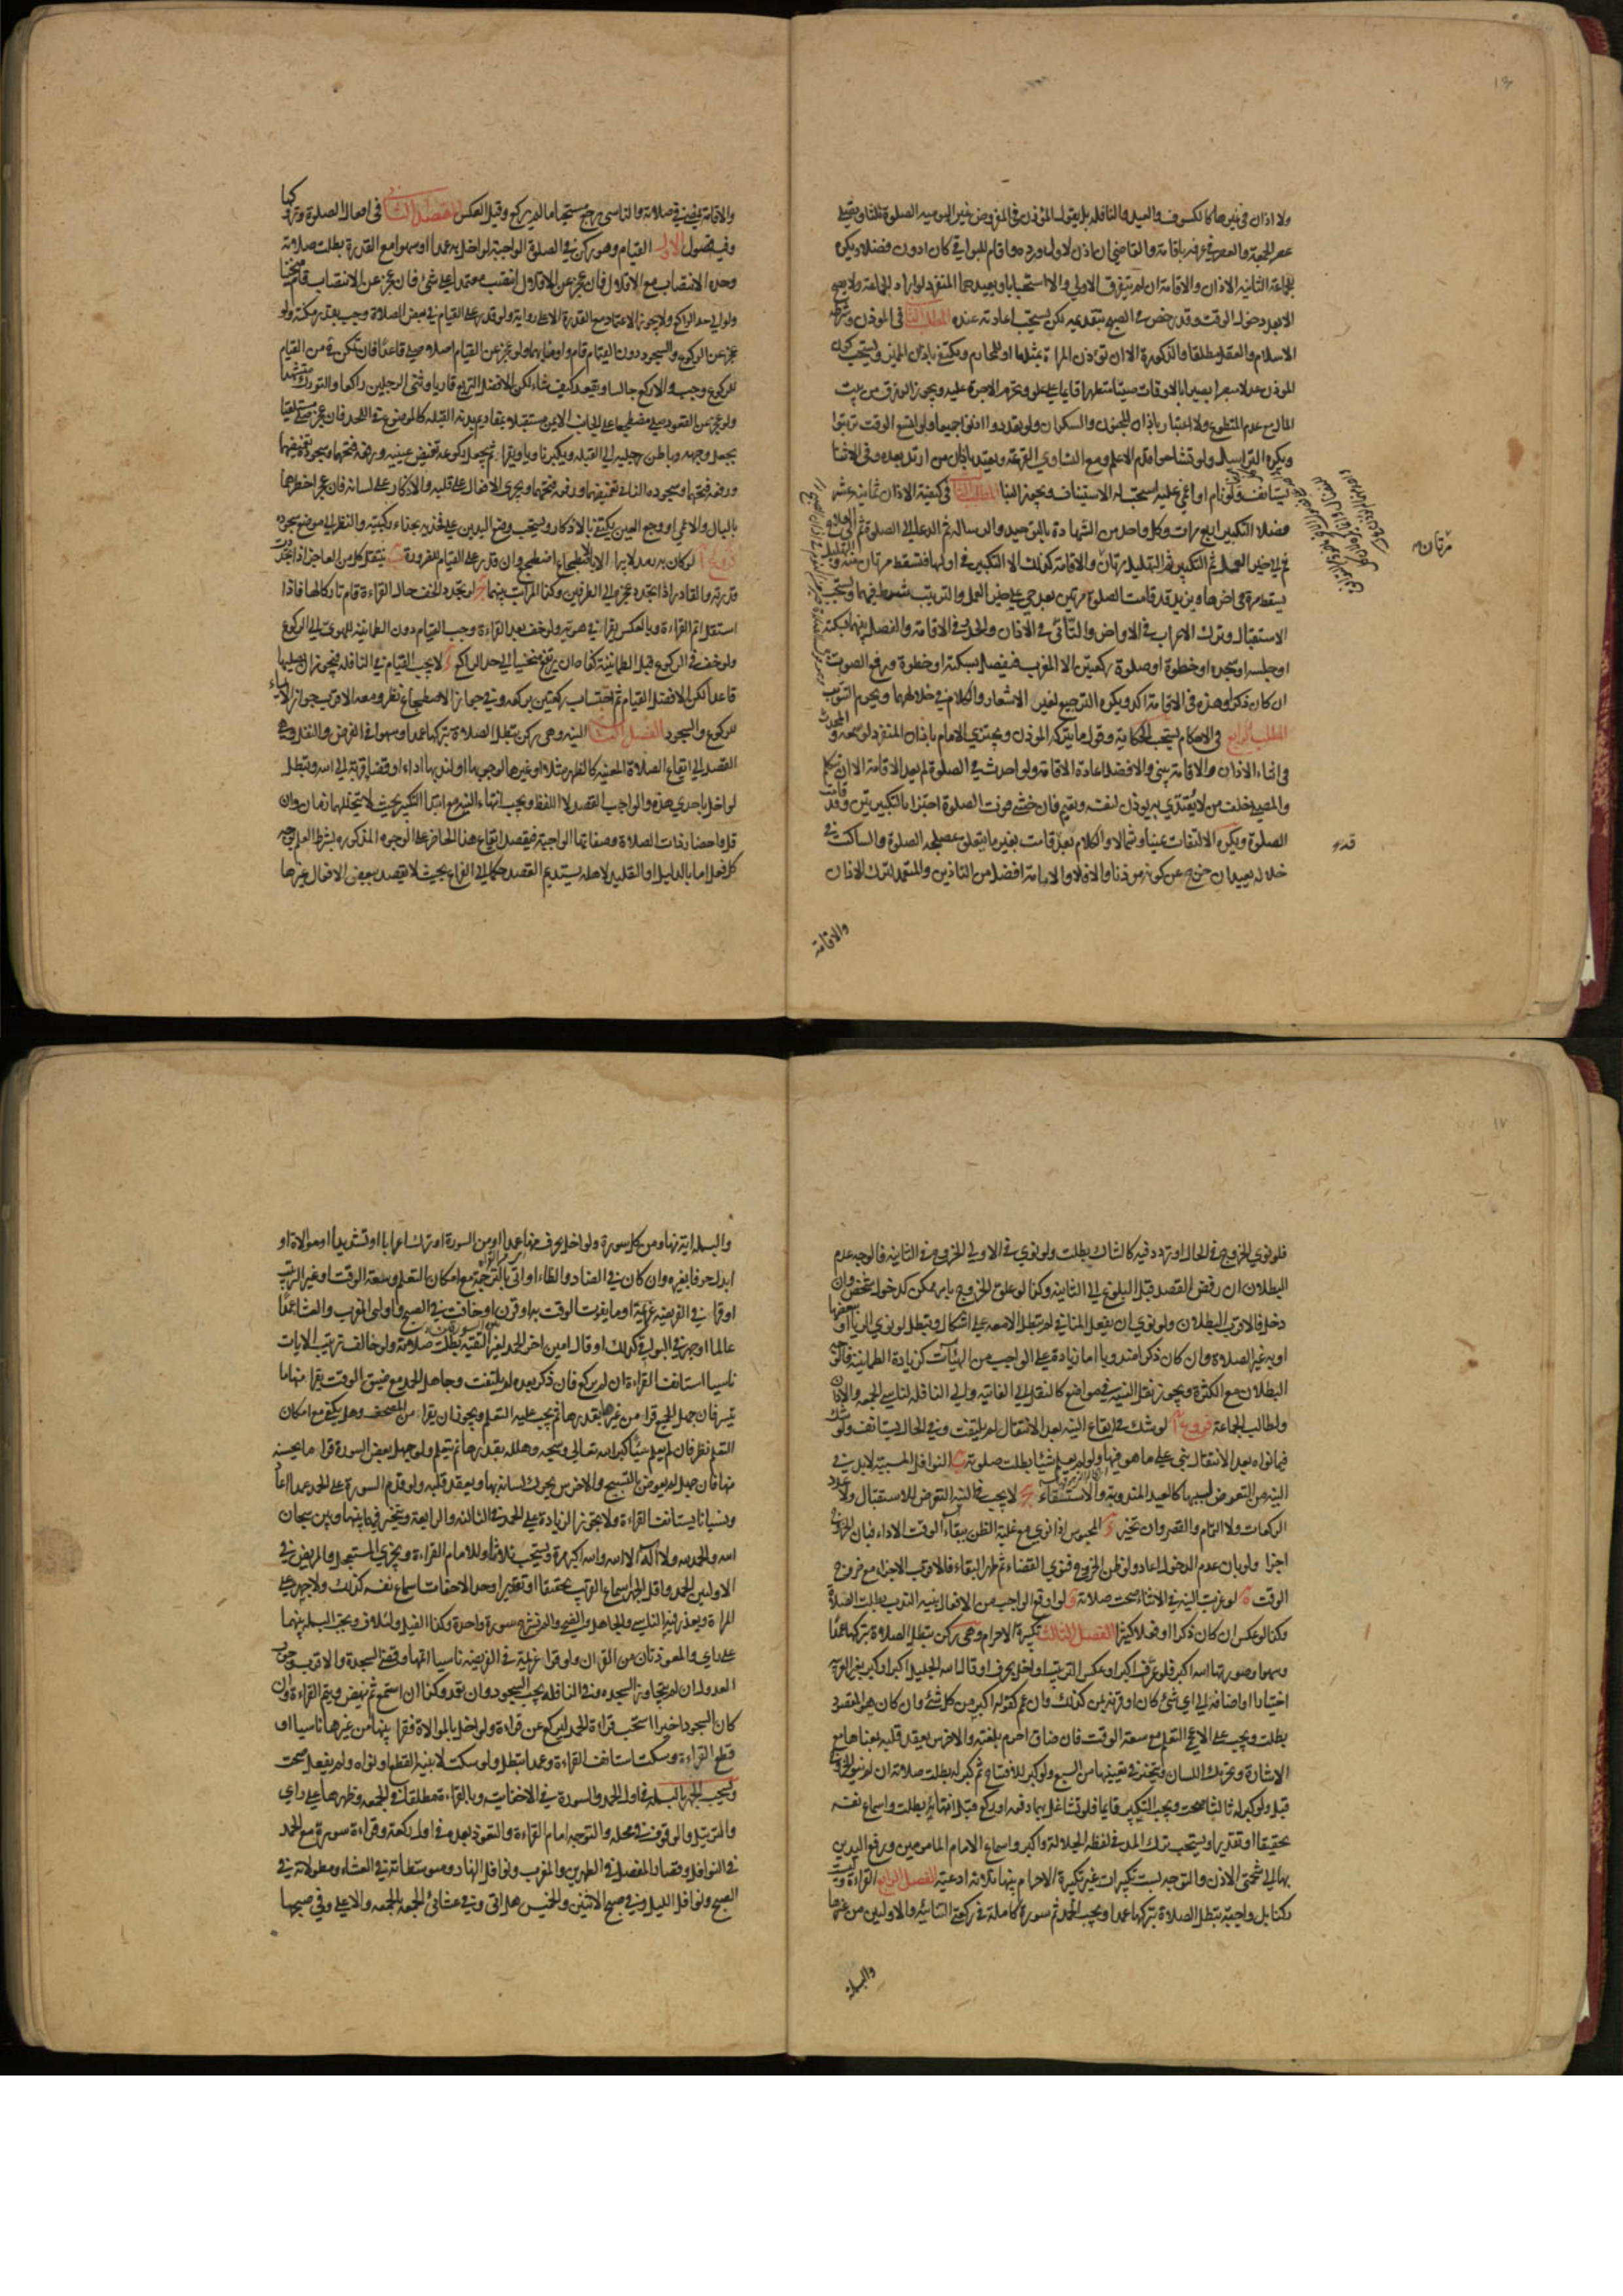 ولا اذان في غيرها كالكسوف والعيد والنافلة بل يقول المؤذن في المفروض غير اليومية الصلوة ثلثا ويصلي
عصر الجمعة والعصر في عرفة باقامة والقاضي ان اذن لاول ورده واقام للبواقي كان ادون فضلا ويكره
للجماعة الثانية الاذان والاقامة ان لم يتفرق الاولى والا استحبابا ويعيدهما المنفرد لو اراد الجماعة ولا يصح
الا بعد دخول الوقت وقد رخص في الصبح بتقديمه لكن يستحب اعادته عنده المطلب الثاني في المؤذن وشرطه
الاسلام والعقل مطلقا والذكورة الا ان تؤذن المراة لمثلها او للمحارم ويكتفى باذان المميز ويستحب كون
المؤذن عدلا مبصرا بصيرا بالاوقات صيتا متطهرا قائما على علو وتحرم الاجرة عليه ويجوز الرزق من بيت
المال مع عدم المتطوع ولا اعتبار باذان المجنون والسكران ولو تعددوا اذنوا جميعا ولو اتسع الوقت ترتبوا
ويكره التراسل ولو تشاحوا قدم الاعلم ومع التساوي القرعة ويعتد باذان من ارتد بعده وفي الاثنا
يستانف ولو نام او اغمي عليه استحب له الاستيناف ويجوز البنا المطلب الثالث في كيفية الاذان ثمانية عشر
فصلا التكبير اربع مرات وكل واحد من الشهادة بالتوحيد والرسالة ثم الدعا الى الصلوة ثم الى الفلاح
ثم الى خير العمل ثم التكبير ثم التهليل مرتان والاقامة كذلك الا التكبير في اولها فتسقط مرتان منه والتهليل
يسقط مرة في اخرها ويزيد قد قامت الصلوة مرتين بعد حي على خير العمل والترتيب شرط فيهما ويستحب
الاستقبال وترك الاعراب في الاواخر والتأني في الاذان والحدر في الاقامة والفصل بينهما بسكتة
او جلسة او سجدة او خطوة او صلوة ركعتين الا المغرب فيفصل بسكتة او خطوة ورفع الصوت
ان كان ذكرا وهذه في الاقامة اكد ويكره الترجيع لغير الاشعار والكلام في خلالهما ويحرم التثويب
المطلب الرابع في الاحكام يستحب الحكاية وقول ما يتركه المؤذن ويجتزي الامام باذان المنفرد لو سمعه والمحدث
في اثناء الاذان والاقامة يبني والافضل اعادة الاقامة ولو احدث في الصلوة لم يعد الاقامة الا ان تكلم
والمصلي خلف من لا يقتدى به يؤذن لنفسه ويقيم فان خشي فوت الصلوة اجتزا بالتكبيرتين وقد قامت
الصلوة ويكره الالتفات يمينا وشمالا والكلام بعد قد قامت بغير ما يتعلق بمصلحة الصلوة والساكت في
خلاله يعيد ان خرج عن كونه مؤذنا والا فلا والامامة افضل من التاذين والمتعمد لترك الاذان
مرتان
قده
والاقامة
والاقامة يمضي في صلاته والناسي يرجع مستحبا ما لم يركع وقيل بالعكس المقصد الثاني في افعال الصلوة وتروكها
وفيه فصول الاول القيام وهو ركن في الصلوة الواجبة لو اخل به عمدا او سهوا مع القدرة بطلت صلاته
وحده الانتصاب مع الاقلال فان عجز عن الاقلال انتصب معتمدا على شئ فان عجز عن الانتصاب قام منحنيا
ولو الى حد الراكع ولا يجوز الاعتماد مع القدرة الا على رواية ولو قدر على القيام في بعض الصلاة وجب بقدر مكنته ولو
عجز عن الركوع والسجود دون القيام قام واومأ بهما ولو عجز عن القيام اصلا صلى قاعدا فان تمكن ح من القيام
للركوع وجب والا ركع جالسا ويقعد كيف شاء لكن الافضل التربع قاريا وثني الرجلين راكعا والتورك متشهدا
ولو عجز عن القعود صلى مضطجعا على الجانب الايمن مستقبلا بمقاديم بدنه القبلة كالموضوع في اللحد فان عجز صلى مستلقيا
يجعل وجهه وباطن رجليه الى القبلة ويكبر ناويا ويقرا ثم يجعل ركوعه تغميض عينيه ورفعه فتحهما وسجوده تغميضهما
ورفعه فتحهما وسجوده الثاني تغميضهما ورفعه فتحهما ويجري الافعال على قلبه والاذكار على لسانه فان عجز اخطرها
بالبال والاعمى او وجع العين يكتفي بالاذكار ويستحب وضع اليدين على فخذيه بحذاء ركبتيه والنظر الى موضع سجوده
فروع آ لو كان به رمد لا يبرا الا بالاضطجاع اضطجع وان قدر على القيام للضرورة ب ينتقل كل من العاجز اذا تجددت
قدرته والقادر اذا تجدد عجزه الى الطرفين وكذا المراتب بينهما ج لو تجدد الخف حال القراءة قام تاركا لها فاذا
استقل اتم القراءة وبالعكس يقرا في هويه ولو خف بعد القراءة وجب القيام دون الطمانينة للهوي الى الركوع
ولو خف في الركوع قبل الطمانينة كفاه ان يرتفع منحنيا الى حد الراكع د لا يجب القيام في النافلة فيجوز ان يصليها
قاعدا لكن الافضل القيام ثم احتساب ركعتين بركعة وفي جواز الاضطجاع نظر ومعه الاقرب جواز الايماء
للركوع والسجود الفصل الثاني النية وهي ركن تبطل الصلاة بتركها عمدا وسهوا في الفرض والنفل وهي
القصد الى ايقاع الصلاة المعينة كالظهر مثلا او غيرها لوجوبها او لندبها اداء او قضاء قربة الى الله وتبطل
لو اخل باحدى هذه والواجب القصد لا اللفظ ويجب انتهاء النية مع ابتدا التكبير بحيث لا يتخللهما زمان وان
قل واحضار ذات الصلاة وصفاتها الواجبة فيقصد ايقاع هذا الحاضر على الوجوه المذكورة بشرط العلم بوجه
كل فعل اما بالدليل او التقليد لاهله يستديم القصد حكما الى الفراغ بحيث لا يقصد ببعض الافعال غيرها
فلو نوى الخروج في الحال او تردد فيه كالشاك بطلت ولو نوى في الاولى الخروج في الثانية فالوجه عدم
البطلان ان رفض القصد قبل البلوغ الى الثانية وكذا لو علق الخروج بامر ممكن كدخول شخص فان
دخل فالاقرب البطلان ولو نوى ان يفعل المنافي لم تبطل الا معه على اشكال وتبطل لو نوى الريا او ببعضها
او به غير الصلاة وان كان ذكرا مندوبا اما زيادة على الواجب من الهيئات كزيادة الطمانينة فالوجه
البطلان مع الكثرة ويجوز نقل النية في مواضع كالنقل الى الفائتة والى النافلة لناسي الجمعة والاذان
ولطالب الجماعة فروع آ لو شك في ايقاع النية بعد الانتقال لم يلتفت وفي الحال يستانف ولو شك
فيما نواه بعد الانتقال بنى على ما هو فيها ولو لم يعلم شيئا بطلت صلوته ب النوافل المسببة لابد في
النية من التعرض لسببها كالعيد المندوبة والاستسقاء ج لا يجب في النية التعرض للاستقبال ولا عدد
الركعات ولا التمام والقصر وان تخير د المحبوس اذا نوى مع غلبة الظن ببقاء الوقت الاداء فبان الخروج
اجزا ولو بان عدم الدخول اعاد ولو ظن الخروج فنوى القضاء ثم ظهر البقاء فالاقرب الاجزاء مع خروج
الوقت ه لو عزبت النية في الاثناء صحت صلاته و لو اوقع الواجب من الافعال بنية الندب بطلت الصلاة
وكذا لو عكس ان كان ذكرا او فعلا كثيرا الفصل الثالث تكبيرة الاحرام وهي ركن تبطل الصلاة بتركها عمدا
وسهوا وصورتها الله اكبر فلو عرف اكبر او عكس الترتيب او اخل بحرف او قال الله الجليل اكبر او كبر بغير العربية
اختيارا او اضافه الى اي شئ كان او قرنه بمن كذلك وان عم كقوله اكبر من كل شئ وان كان هو المقصود
بطلت ويجب على الاعجمي التعلم مع سعة الوقت فان ضاق احرم بلغته والاخرس يعقد قلبه بمعناها مع
الاشارة وتحريك اللسان ويتخير في تعيينها من السبع ولو كبر للافتتاح ثم كبر له بطلت صلاته ان لم ينو الخروج
قبل ولو كبر له ثالثا صحت ويجب التكبير قائما فلو تشاغل بهما دفعة او ركع قبل انتهائه بطلت واسماع نفسه
تحقيقا او تقديرا ويستحب ترك المد في لفظة الجلالة واكبر واسماع الامام المامومين ورفع اليدين
بها الى شحمتي الاذن والتوجه بست تكبيرات غير تكبيرة الاحرام بينها ثلاثة ادعية الفصل الرابع القراءة وليست
ركنا بل واجبة تبطل الصلاة بتركها عمدا ويجب الحمد ثم سورة كاملة في ركعتي الثنائية والاوليين من غيرها
والبسملة
والبسملة اية منها ومن كل سورة ولو اخل بحرف منها عمدا او من السورة او ترك اعرابا او تشديدا او موالاة او
ابدل حرفا بغيره وان كان في الضاد والظاء او اتى بالترجمة مع امكان التعلم وسعة الوقت او غير الترتيب
او قرا في الفريضة عزيمة او ما يفوت الوقت به او قرن او خافت في الصبح او اوليي المغرب والعشا عمدا
عالما او جهر في البواقي كذلك او قال امين اخر الحمد لغير التقية بطلت صلاته ولو خالف ترتيب الايات
ناسيا استانف القراءة ان لم يركع فان ذكر بعده لم يلتفت وجاهل الحمد مع ضيق الوقت يقرا منها ما
تيسر فان جهل الجميع قرا من غيرها بقدرها ثم يجب عليه التعلم ويجوز ان يقرا من المصحف وهل يكفي مع امكان
التعلم نظر فان لم يعلم شيئا كبر الله تعالى وسبحه وهلله بقدرها ثم يتعلم ولو جهل بعض السورة قرا ما يحسنه
منها فان جهل لم يعوض بالتسبيح والاخرس يحرك لسانه بها ويعقد قلبه ولو قدم السورة على الحمد عمدا اعاد
ونسيانا يستانف القراءة ولا يجوز الزيادة على الحمد في الثالثة والرابعة ويتخير فيها بينها وبين سبحان
الله والحمد لله ولا اله الا الله والله اكبر مرة ويستحب ثلاثا وللامام القراءة ويجزي المستعجل والمريض في
الاوليين الحمد واقل الجهر اسماع القريب تحقيقا او تقديرا وحد الاخفات اسماع نفسه كذلك ولا جهر على
المراة ويعذر فيه الناسي والجاهل والضحى والم نشرح سورة واحدة وكذا الفيل ولئلاف وتجب البسملة بينهما
على راي والمعوذتان من القران ولو قرا عزيمة في الفريضة ناسيا اتمها وقضى السجدة والاقرب وجوب
العدول ان لم يتجاوز السجدة وفي النافلة يجب السجود وان تعمد وكذا ان استمع ثم ينهض ويتم القراءة وان
كان السجود اخيرا استحب قراءة الحمد ليركع عن قراءة ولو اخل بالموالاة فقرا بينها من غيرها ناسيا او
قطع القراءة وسكت استانف القراءة وعمدا تبطل ولو سكت لا بنية القطع او نواه ولم يفعل صحت
ويستحب الجهر بالبسملة في اول الحمد والسورة في الاخفاتية وبالقراءة مطلقا في الجمعة وظهرها على راي
والترتيل والوقوف في محله والتوجه امام القراءة والتعوذ بعده في اول ركعة وقراءة سورة مع الحمد
في النوافل وقصار المفصل في الظهرين والمغرب ونوافل النهار ومتوسطاته في العشاء ومطولاته في
الصبح ونوافل الليل وفي صبح الاثنين والخميس هل اتى وفي عشائي الجمعة بالجمعة والاعلى وفي صبحها